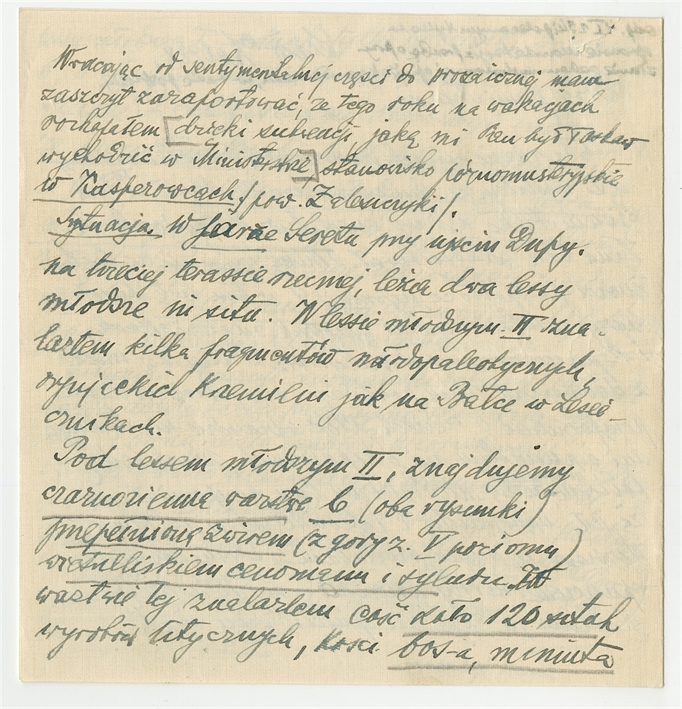 Wracając od sentymentalnej części do prozaicznej mam
zaszczyt zaraportować, że tego roku na wakacjach
rozkopałem [dzięki subwencji jaką mi Pan był łaskaw
wychodzić w Ministerstwie] stanowisko późnomustyrskie
w Kasperowcach /pow. Zaleszczyki/.
Sytuacja. W jarze Seretu przy ujściu Dupy.
na trzeciej terassie rzecznej, leżą dwa lessy
młodsze in situ. W lessie młodszym II zna-
lazłem kilka fragmentów młodopaleolitycznych,
oryniackich Krzemieni jak na Bałce w Lesie-
cznikach.
Pod lessem młodszym II, znajdujemy
czarnoziemną warstwę b (oba rysunki)
przepełnioną żwirem (z góry z. V poziomu)
wietrzliskiem cenomanu i syluru. W
warstwie tej znalazłem coś koło 120 sztuk
wyrobów litycznych, kości bos-a,